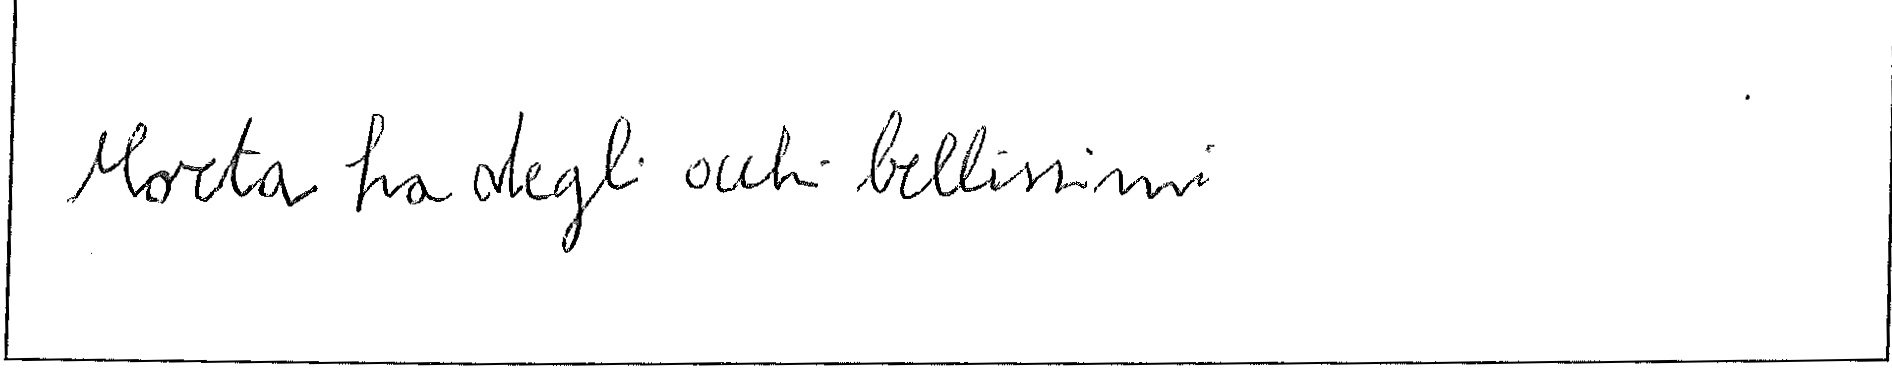 Moreta ha degli occhi bellissimi